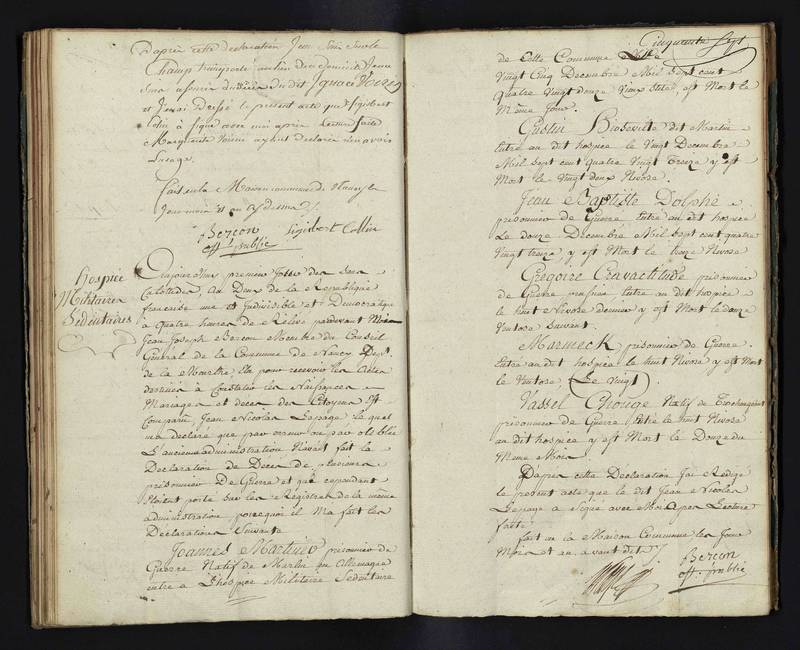 D'après cette déclaration Jeme Suis Sur le
Champ transporté au lieu de
du dit Ignace
et J'en ai dressé le présent acte que Sigisbert
Colin à Signé avec moi après Lecture faite
Marguerite ayant declarée n'en avoir
L'usage.
fait en la Maison commune de Nancy le
Jour mois et an
Berçon
off. public
Sigisbert Collin
hospice
Militaires
Sédentaires
Aujourd'huy premier Jour des Sans
Calottides, an Deux de la République
française une et Indivisible et Democratique
à quatre heures de Relevé pardevant Moi
Jean Joseph Berçon Membre du Conseil
Général de la Commune de Nancy Dept.
de la Meurthe, Elu pour recevoir les Actes
destinés à Constater les Naissances
Mariages et décès des Citoyens Est
Comparu Jean Nicolas Lepage le quel
ma déclaré que par erreur ou par oublie
L'ancienne administration N'avait fait la
Déclaration de Décès de plusieurs
prisonnier De Guerre et que cependant
étoient porté sur les Régistres de la même
administration pourquoi il M'a fait les
Déclarations Suivante
Joannes Martines prisonnier de
Guerre Natif de Marlin en Allemagne
entré a L'hospice Militaire Sédentaire
Cinquante Sept
de Cette Commune Le
Vingt Cinq Decembre Mil Sept cent
quatre Vingt douze Vieux Stile, est Mort le
Même Jour.
Gustin dit Martin
Entré au dit hospice le Vingt Decembre
Mil Sept cent quatre Vingt Treize y est
Mort le Vingt deux Nivose.
Jean Baptiste Dolphe
prisonnier de Guerre Entré au dit hospice
Le douze Decembre Mil Sept cent quatre
Vingt treize y est Mort le treize Nivose
Grégoire prisonnier
de Guerre entré au dit hospice
le huit Nivose dernier y est Mort le douze
Ventose Suivant.
Marneck prisonnier de Guerre
Entré au dit hospice le huit Nivose y est Mort
le Ventose (Le Vingt)
Vassel Natif de
prisonnier de Guerre Entré le huit Nivose
au dit hospice y est Mort le Douze du
Même Mois
D'après cette Déclaration J'ai Rédigé
le présent acte que le dit Jean Nicolas
Lepage a Signé avec Moi apres Lecture
faite
fait en la Maison Commune les Jour
Mois et an avant dit
Berçon
off. public